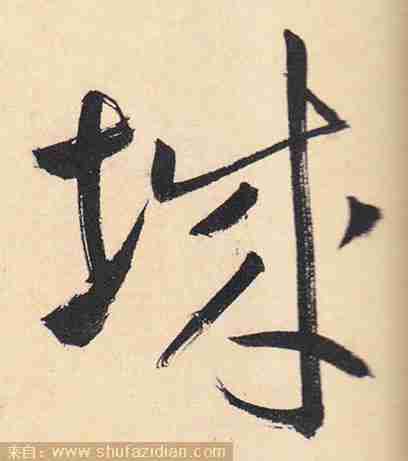 球
来自：www.shufazidian.com